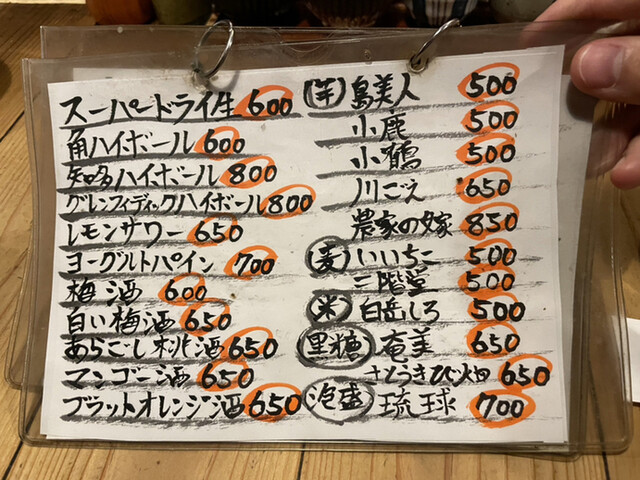 スーパードライ生 600
角ハイボール 600
知多ハイボール 800
グレンフィディックハイボール 800
レモンサワー 650
ヨーグルトパイン 700
梅酒 600
白い梅酒 650
あらごし桃酒 650
マンゴー酒 650
ブラットオレンジ酒 650
芋 島美人 500
小鹿 500
小鶴 500
川ごえ 650
農家の嫁 850
麦 いいちこ 500
二階堂 500
米 白岳しろ 500
黒糖 奄美 650
さとうきび火田 650
泡盛 琉球 700